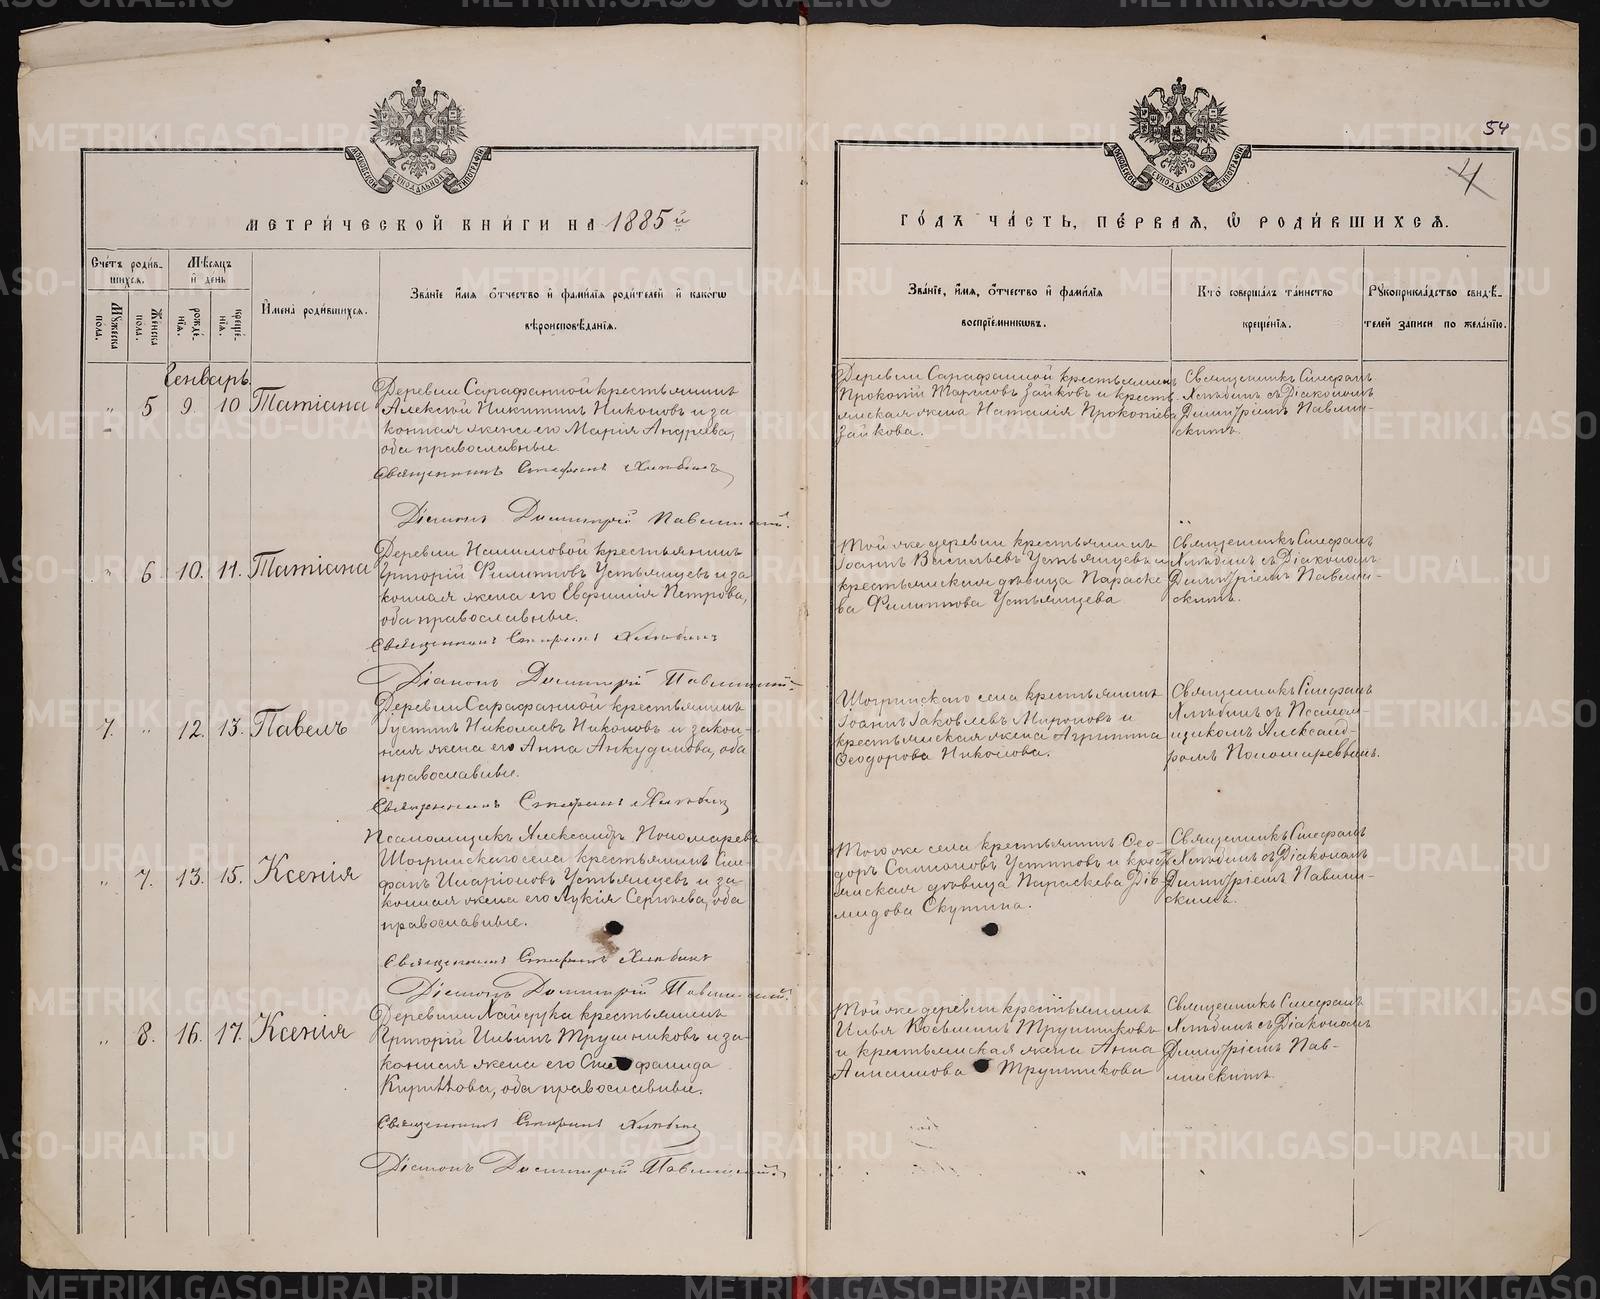 54
4
МЕТРИ́ЧЕСКОЙ КНИ́ГИ НА 1885й
ГО́ДЪ ЧА́СТЬ, ПЕ́РВАЯ, Ѡ҆ РОДИ́ВШИХСЯ.
Сче́тъ роди́в-
шихся.
Му́жеска пола.
Же́нска пола.
Мѣ́сяцъ и҆ день
рожде́-
нїя.
креще́-
нїя.
И҆мена̀ роди́вшихся.
Зва́нїе и҆мя ѻ҆́тчество и҆ фами́лїя роди́телей и҆ како́гѡ
вѣроисповѣ́данїя.
Зва́нїе, и҆мя, ѻ҆́тчество и҆ фами́лїя
воспрїе́мникѡвъ.
Кто̀ соверша́лъ та́инство
креще́нїя.
Рꙋкоприкла́дство свидѣ́-
телей за́писи по жела́нїю.
Генварь.
" 5 9. 10 Татіана
Деревни Сарафанной крестьянинъ
Алексѣй Никитинъ Никоновъ и за-
конная жена его Марія Андреева,
оба православные.
Священникъ Стефанъ Хлѣбинъ
Діаконъ Димитрій Павлинскій.
Деревни Сарафанной крестьянинъ
Прокопій Тарасовъ Зайковъ и кресть-
янская жена Наталія Прокопіева
Зайкова.
Священникъ Стефанъ
Хлѣбинъ съ Діакономъ
Димитріемъ Павлин-
скимъ.
" 6 10. 11. Татіана
Деревни Налимовой крестьянинъ
Григорій Филипповъ Устьянцевъ и за-
конная жена его Евфимія Петрова,
оба православные.
Священникъ Стефанъ Хлѣбинъ
Діаконъ Димитрій Павлинскій.
Той же деревни крестьянинъ
Іоаннъ Васильевъ Устьянцевъ и
крестьянская дѣвица Параске-
ва Филиппова Устьянцева
Священникъ Стефанъ
Хлѣбинъ съ Діакономъ
Димитріемъ Павлин-
скимъ.
7. " 12. 13. Павелъ
Деревни Сарафанной крестьянинъ
Іустинъ Николаевъ Никоновъ и закон-
ная жена его Анна Анкудинова, оба
православные.
Священникъ Стефанъ Хлѣбинъ
Псаломщикъ Александръ Пономаревъ
Шогринскаго села крестьянинъ
Іоаннъ Іаковлевъ Мироновъ и
крестьянская жена Агриппина
Ѳеодорова Никонова.
Священникъ Стефанъ
Хлѣбинъ съ Псалом-
щикомъ Александ-
ромъ Пономаревымъ.
" 7. 13. 15. Ксенія
Шогринскаго села крестьянинъ Сте-
фанъ Иларіоновъ Устьянцевъ и за-
конная жена его Лукія Сергѣева, оба
православные.
Священникъ Стефанъ Хлѣбинъ
Діаконъ Димитрій Павлинскій.
Того же села крестьянинъ Ѳео-
доръ Самсоновъ Устиновъ и кресть-
янская дѣвица Параскева Діо-
мидова Скутина.
Священникъ Стефанъ
Хлѣбинъ съ Діакономъ
Димитріемъ Павлин-
скимъ.
" 8. 16. 17. Ксенія
Деревни Хайдука крестьянинъ
Григорій Ильинъ Трушниковъ и за-
конная жена его Стефанида
Кириллова, оба православные.
Священникъ Стефанъ Хлѣбинъ
Діаконъ Димитрій Павлинскій.
Той же деревни крестьянинъ
Илья Косьминъ Трушниковъ
и крестьянская жена Анна
Анисимова Трушникова
Священникъ Стефанъ
Хлѣбинъ съ Діакономъ
Димитріемъ Пав-
линскимъ.